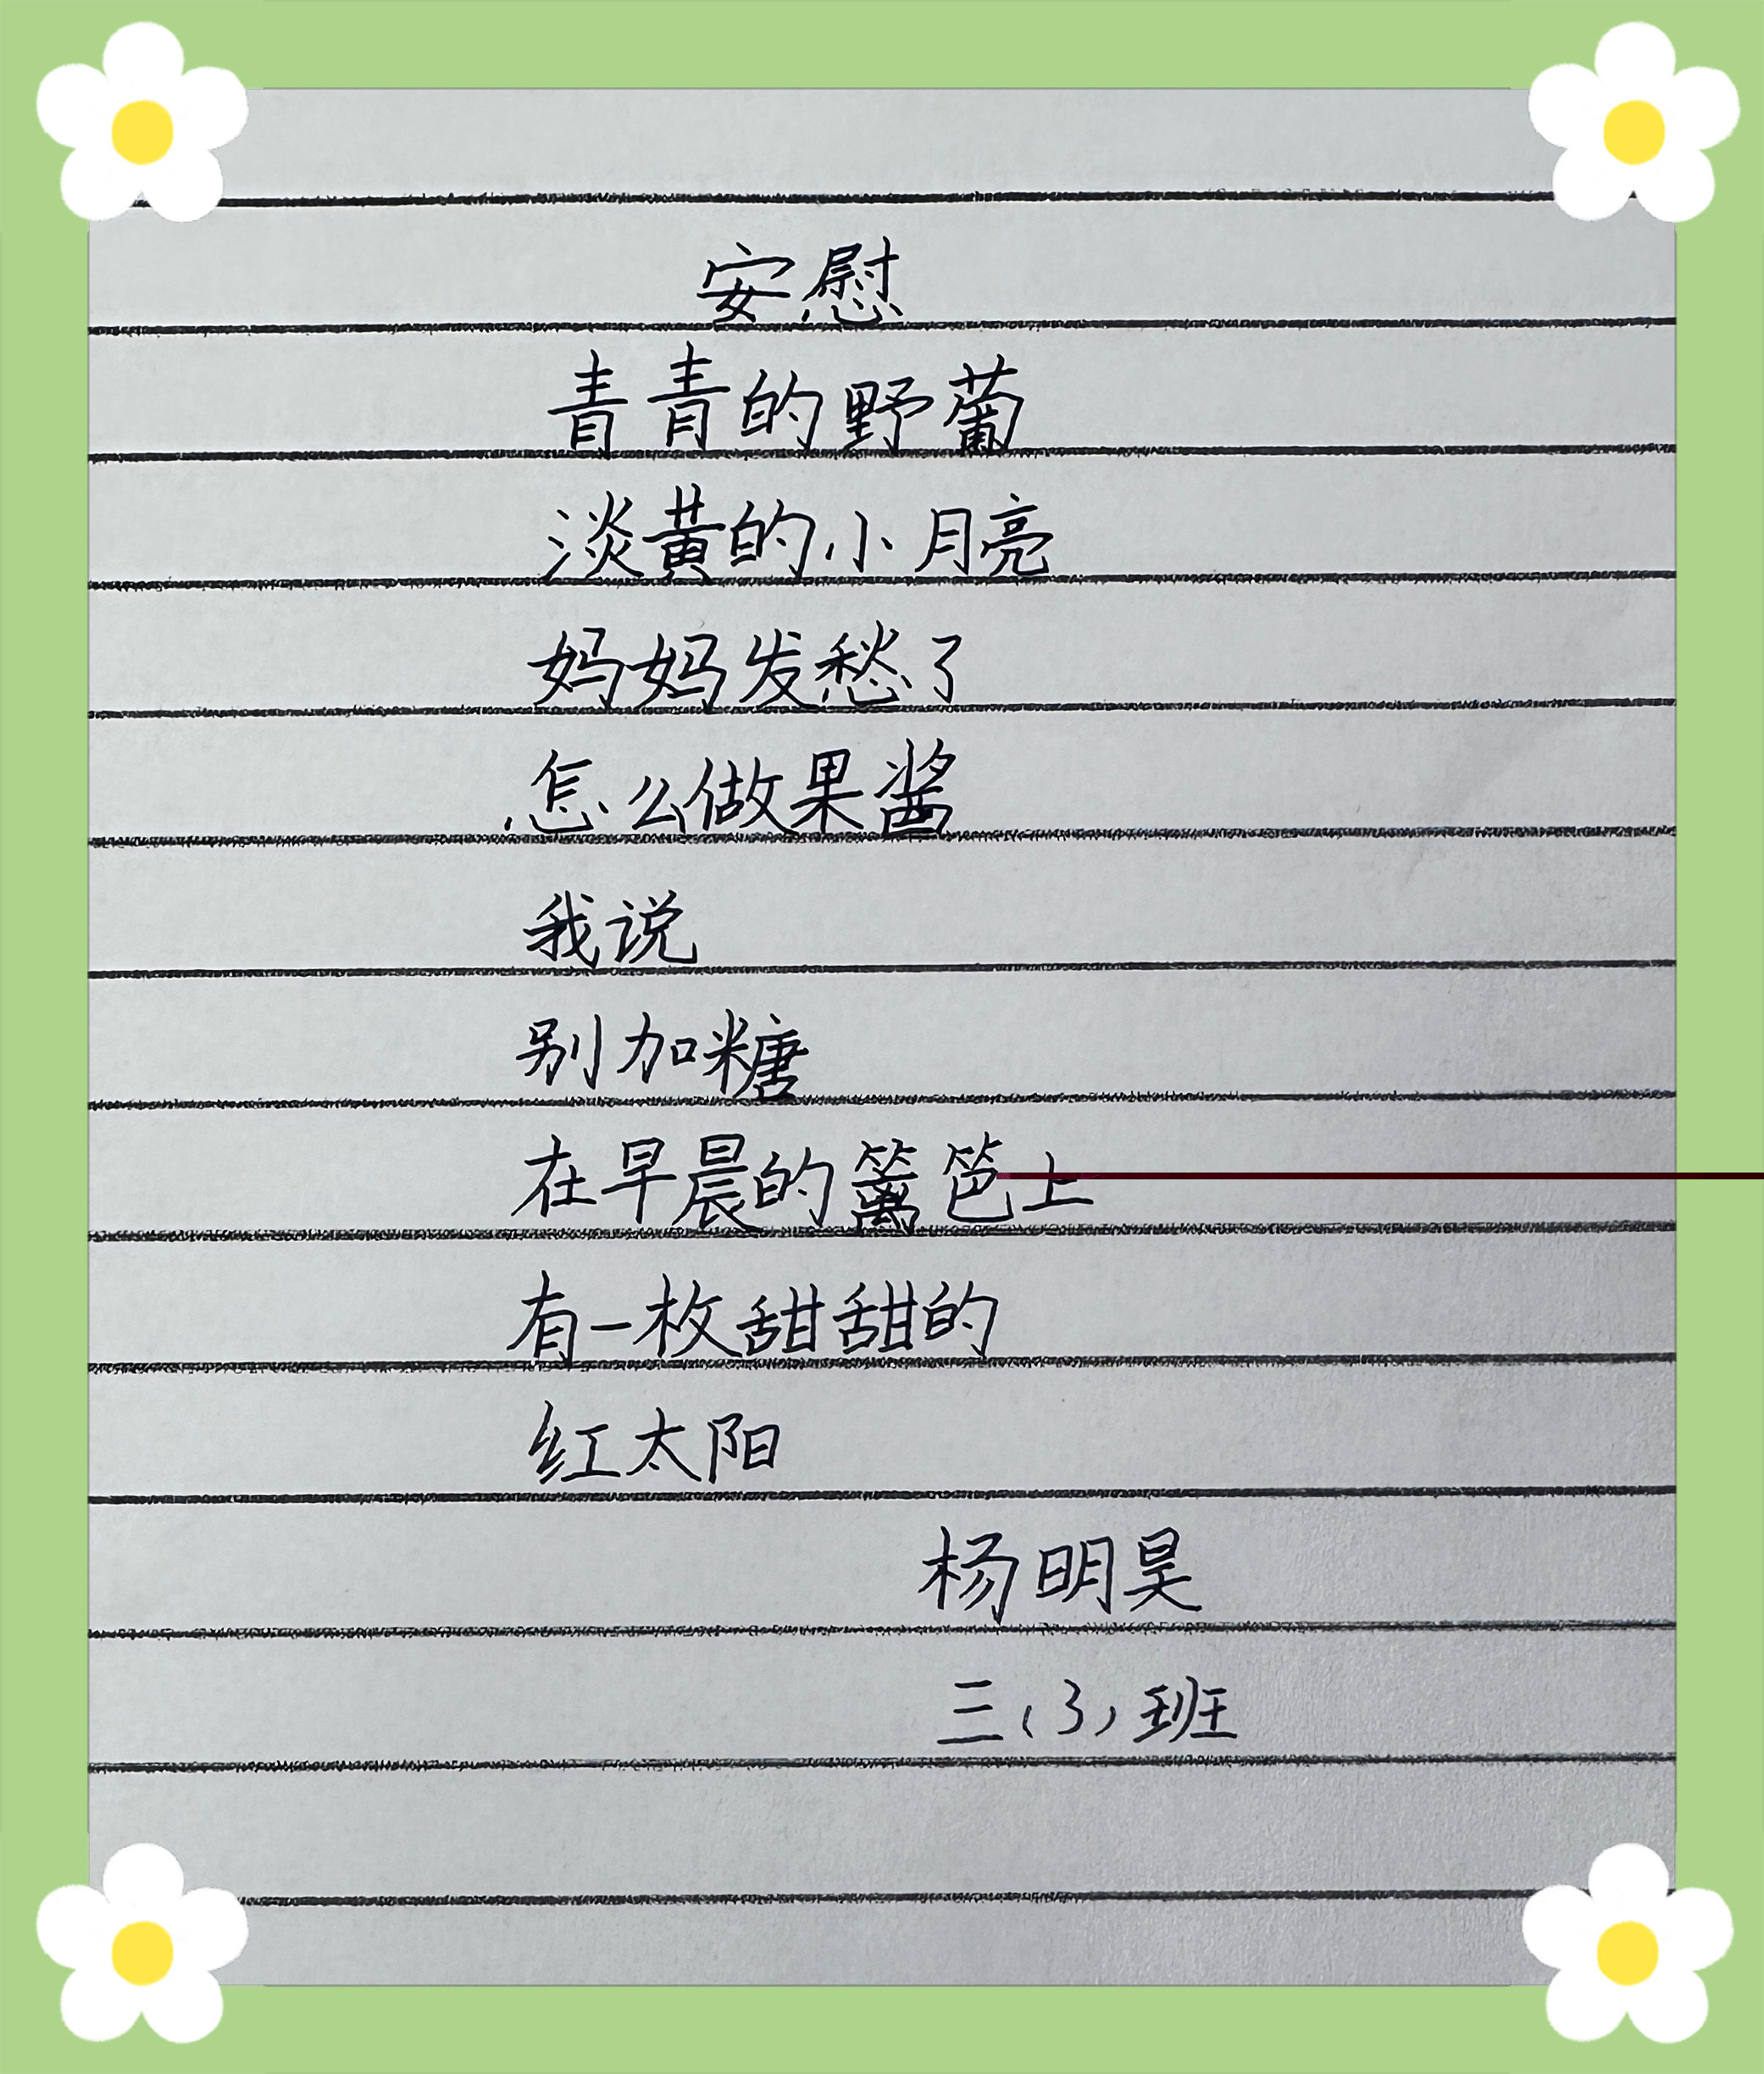 安慰
青青的野葡
淡黄的小月亮
妈妈发愁了
怎么做果酱
我说
别加糖
在早晨的篱笆上
有一枚甜甜的
红太阳
杨明昊
三(3)班